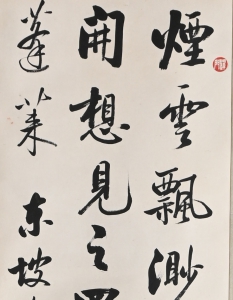 煙雲飄渺
開想見之
蓬萊東坡